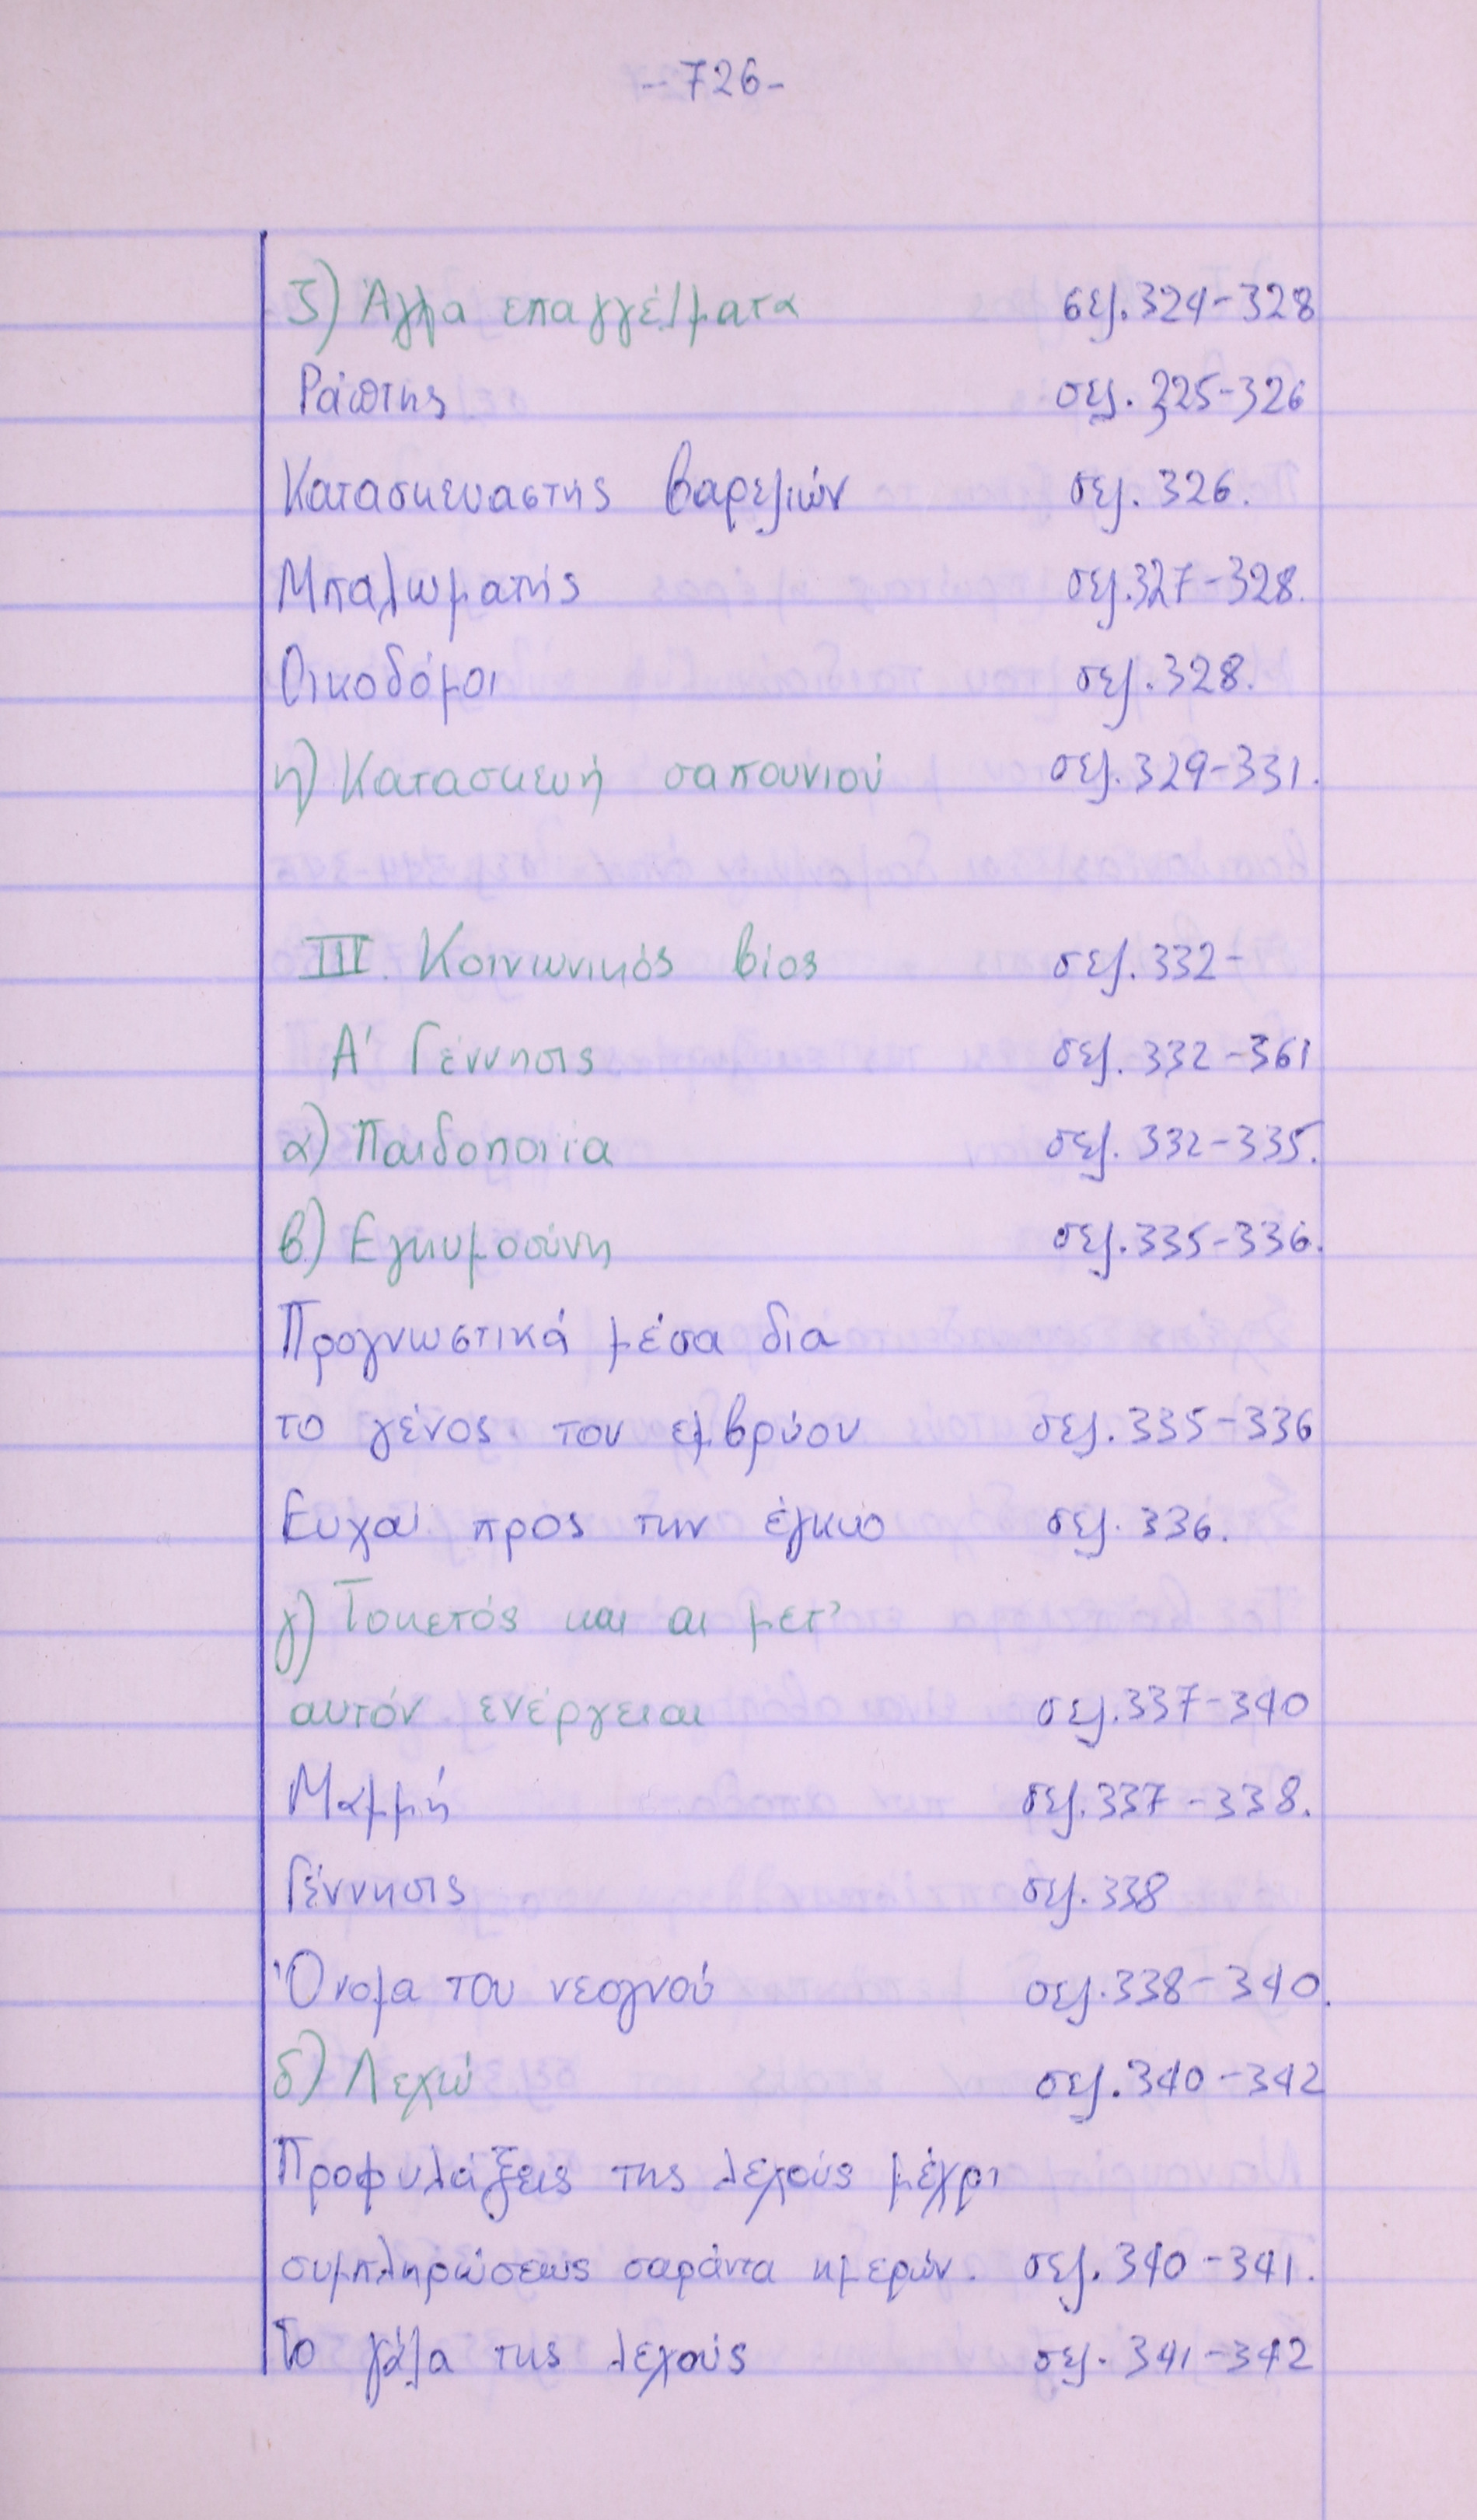 -726-
ζ) Άλλα επαγγέλματα σελ. 324-328
Ράπτης σελ. 325-326
Κατασκευαστής βαρελιών σελ. 326.
Μπαλωματής σελ. 327-328.
Οικοδόμοι σελ. 328.
η) Κατασκευή σαπουνιού σελ. 329-331.
III. Κοινωνικός βίος σελ. 332-
Α' Γέννησις σελ. 332-361
α) Παιδοποιία σελ. 332-335.
β) Εγκυμοσύνη σελ. 335-336.
Προγνωστικά μέσα δια
το γένος του εμβρύου σελ. 335-336
Ευχαί προς την έγκυο σελ. 336.
γ) Τοκετός και αι μετ'
αυτόν ενέργειαι σελ. 337-340
Μαμμή σελ. 337-338.
Γέννησις σελ. 338
Όνομα του νεογνού σελ. 338-340.
δ) Λεχώ σελ. 340-342
Προφυλάξεις της λεχούς μέχρι
συμπληρώσεως σαράντα ημερών. σελ. 340-341.
Το γάλα της λεχούς σελ. 341-342